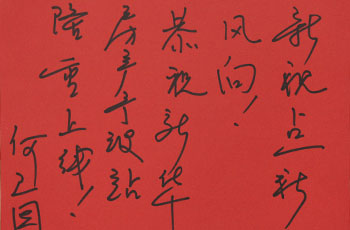 新视点新
风向！
恭祝新华
房产宁波站
隆重上线！
何卫国